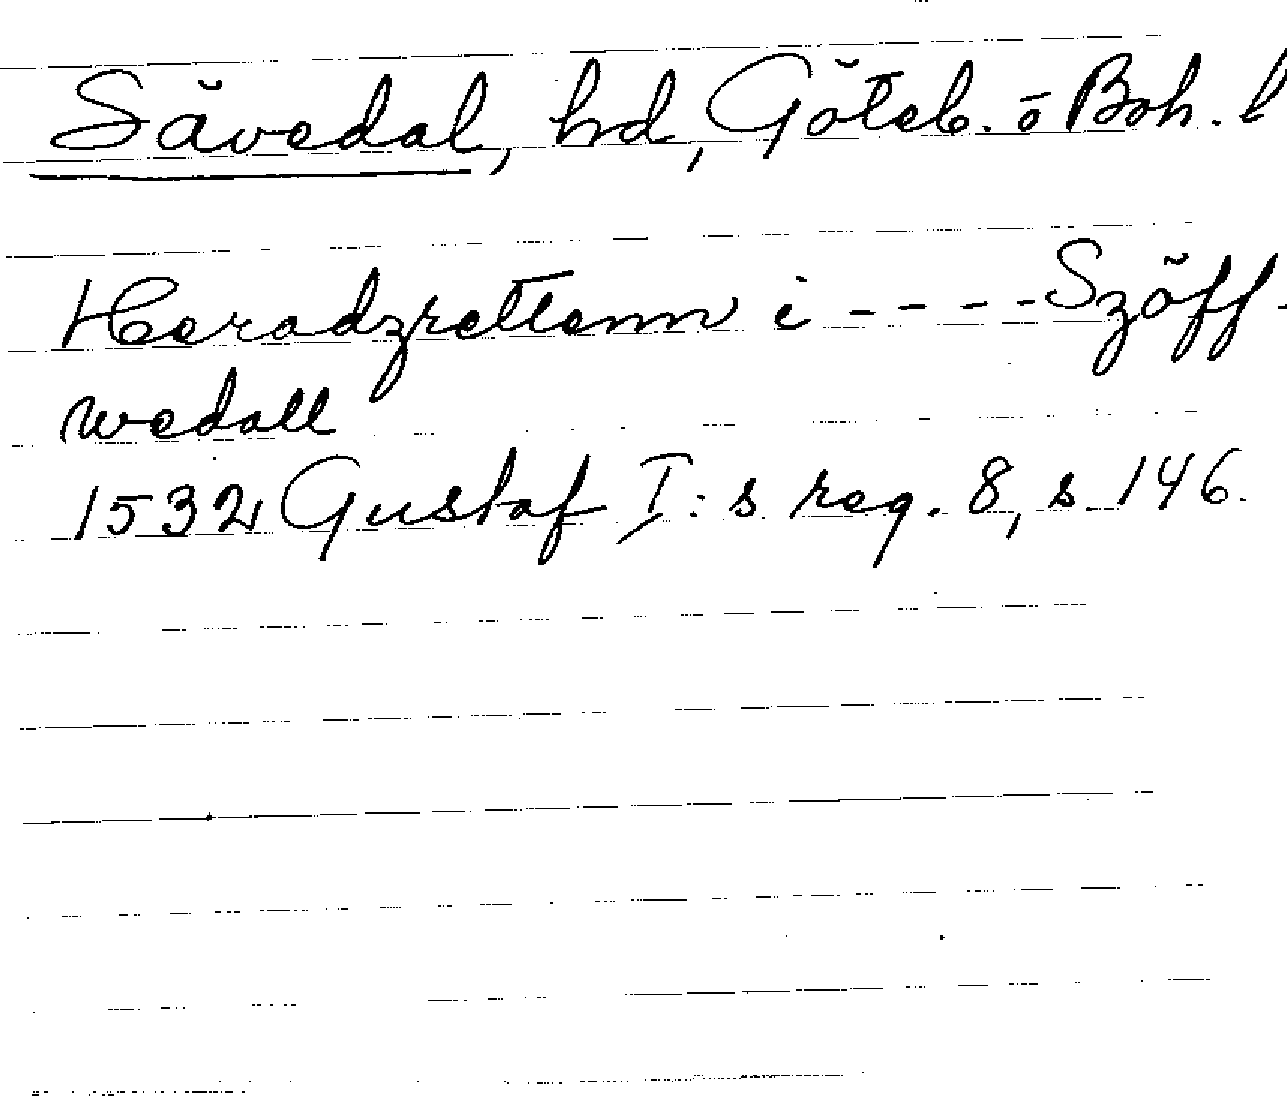 Sävedal, hd, Göteb. o Boh. l
Heradzrettenn i - - - - Szöff-
wedall
1532 Gustaf I:s reg. 8, s 146.